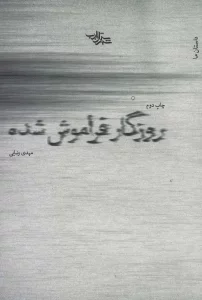 داستان ما
چاپ دوم
روزگار فراموش شده
مهدی رضایی